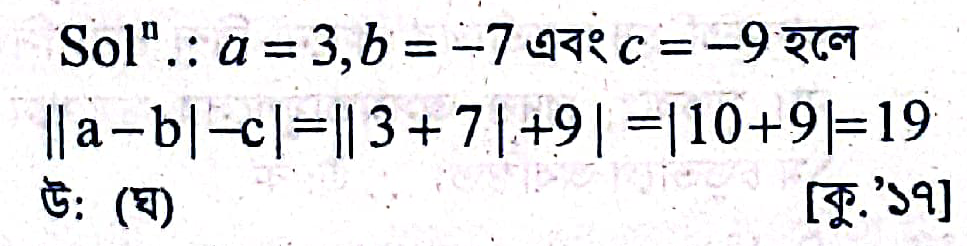 Solⁿ.: a = 3, b = −7 এবং c = −9 হলে
||a−b|−c|=||3+7|+9| =|10+9|=19
উ: (ঘ) [কু.’১৭]